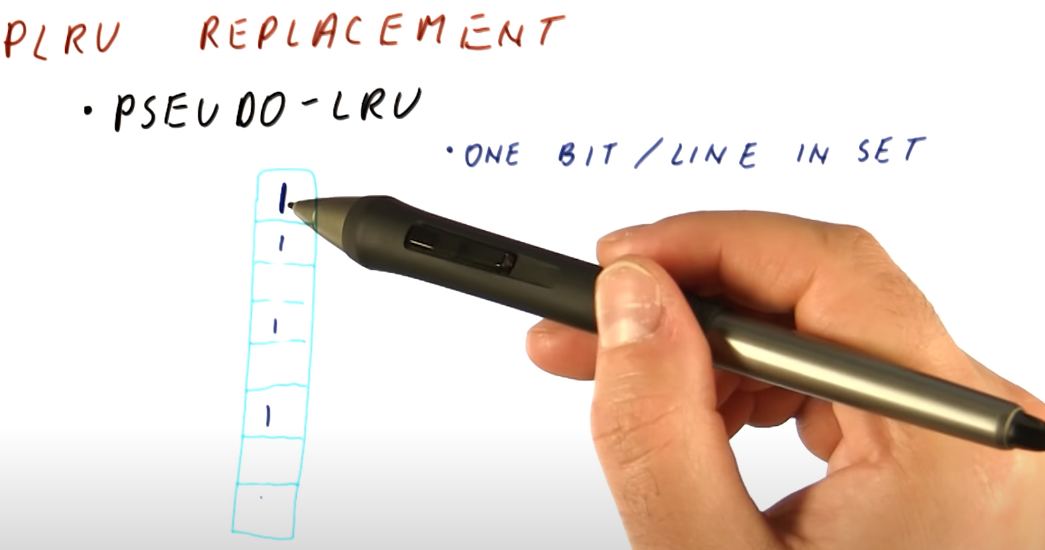 PLRU REPLACEMENT
• PSEUDO-LRU
• ONE BIT/LINE IN SET
1
1
1
1